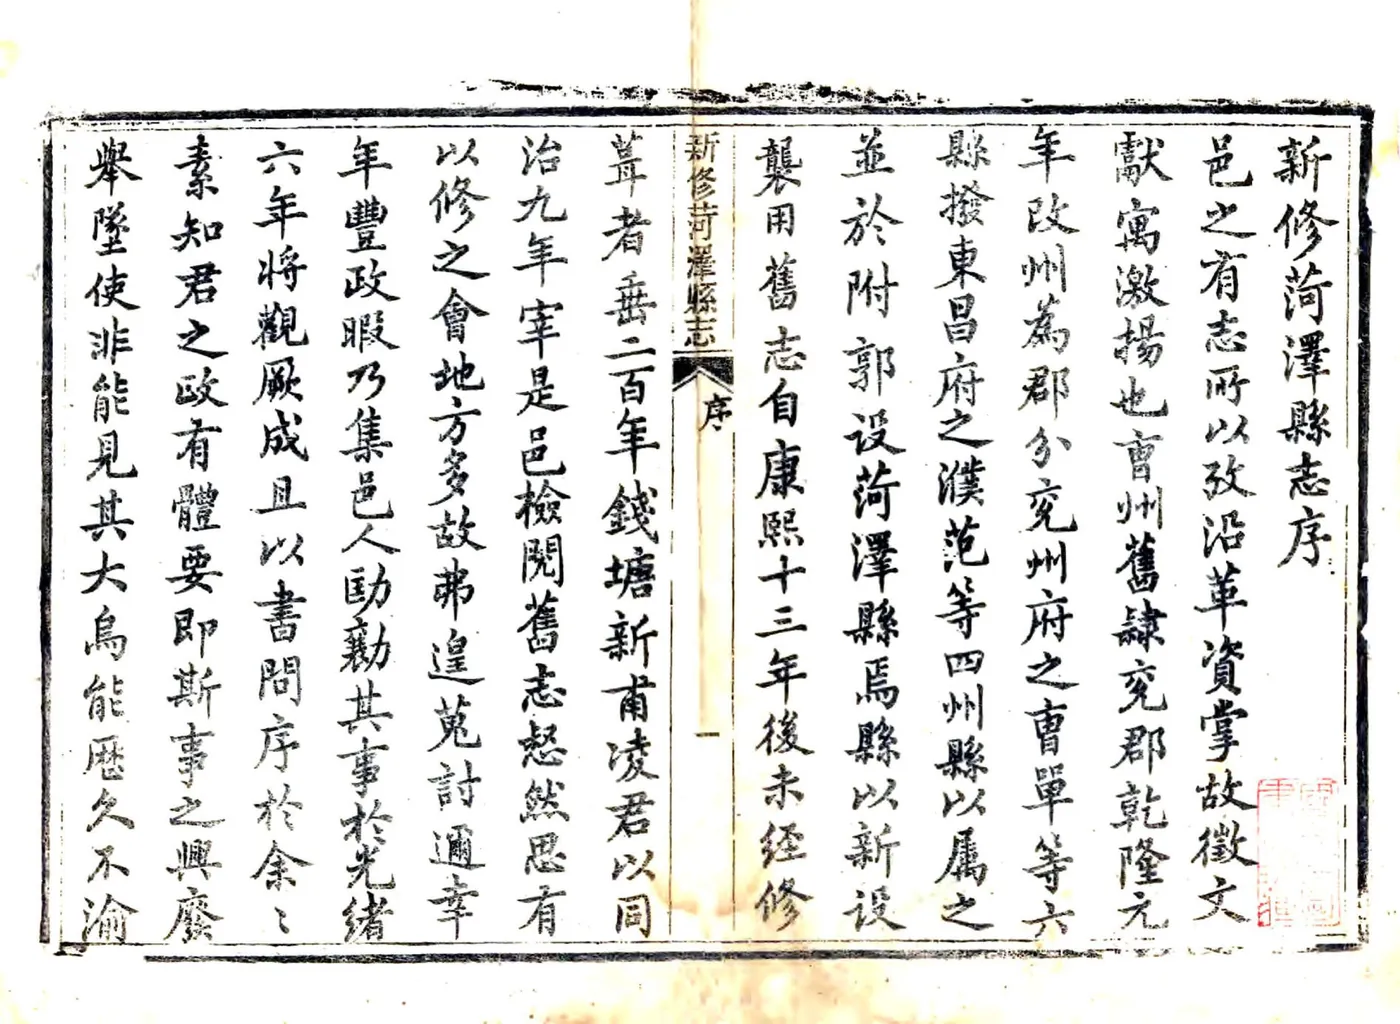 新修菏澤縣志序
邑之有志所以攷沿革資掌故徵文
獻寓激揚也曹州舊隸兖郡乾隆元
年改州為郡分兖州府之曹單等六
縣撥東昌府之濮范等四州縣以属之
並於附郭设菏澤縣焉縣以新設
襲用舊志自康熙十三年後未经修
新修菏澤縣志
序
一
葺者垂二百年錢塘新甫凌君以同
治九年宰是邑檢閱舊志慭然思有
以修之會地方多故弗遑蒐討邇幸
年豐政暇乃集邑人劻勷其事於光緒
六年将觀厥成且以書問序於余〻
素知君之政有體要即斯事之興廢
舉墜使非能見其大烏能歷久不渝